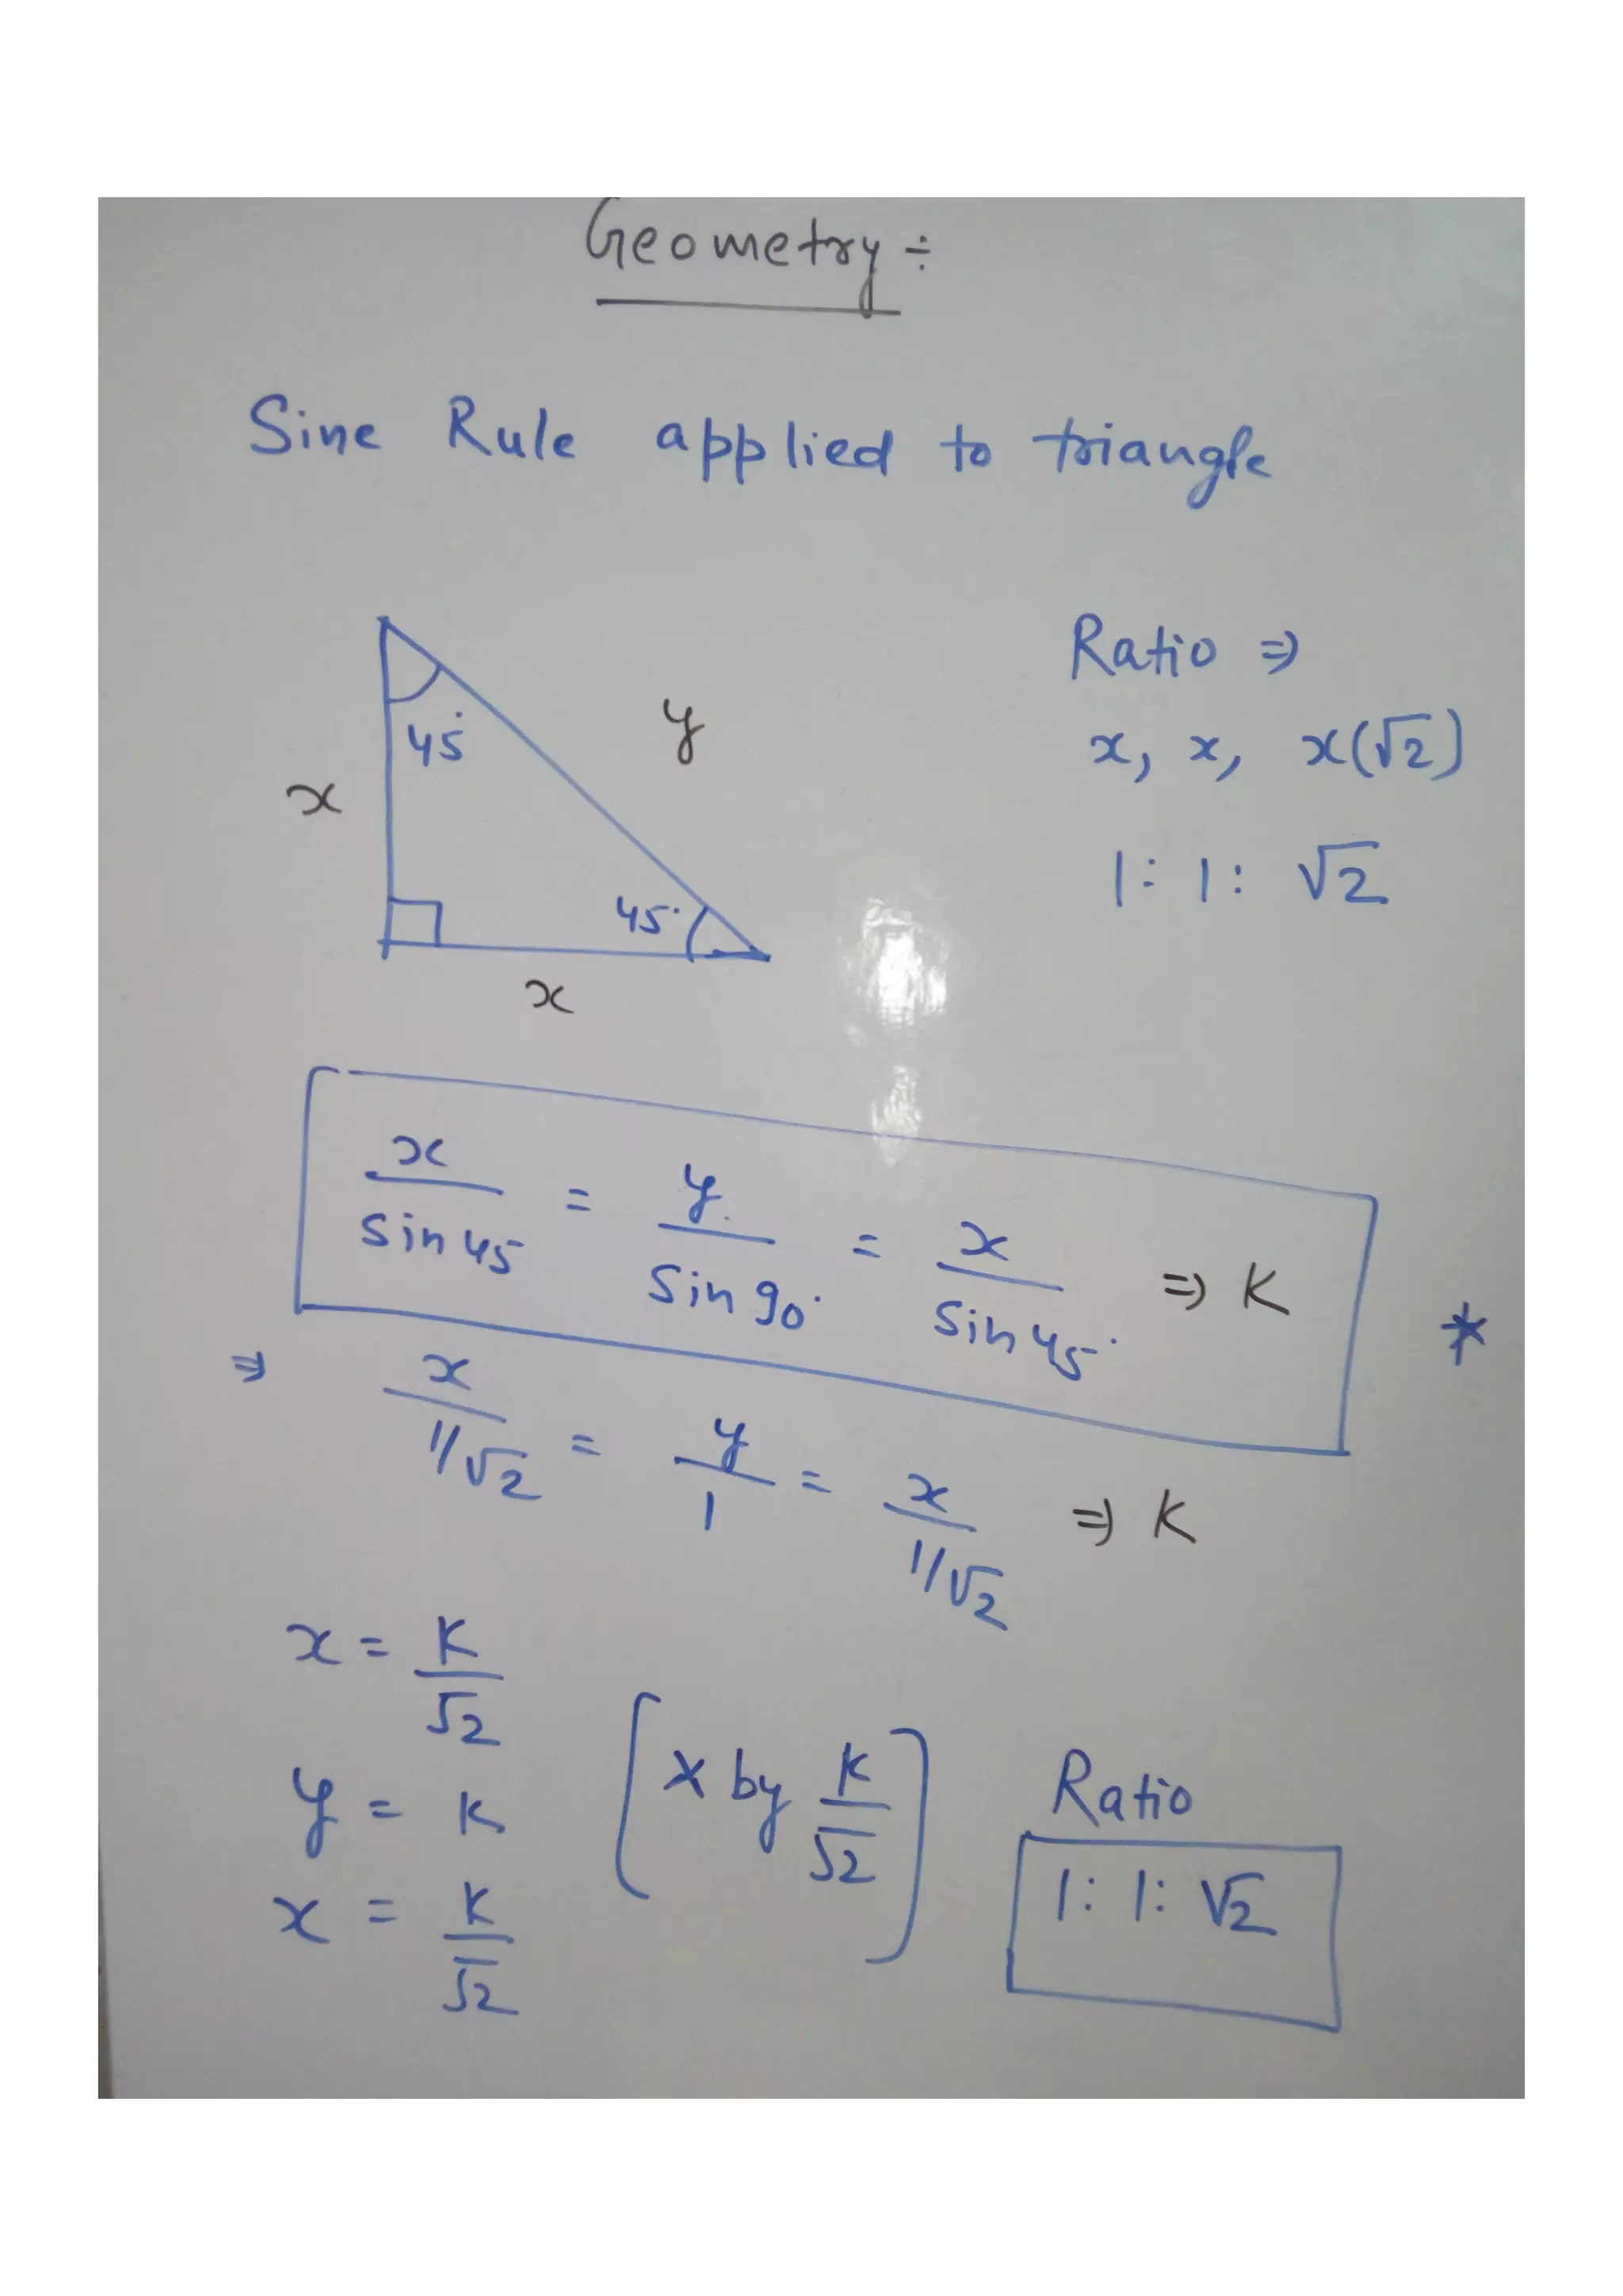 Geometry ÷
Sine Rule applied to triangle
Ratio ⇒
x, x, x(√2)
1 : 1 : √2
45°
y
x
45°
x
x/sin 45 = y/sin 90° = x/sin 45° ⇒ K
*
⇒ x/(1/√2) = y/1 = x/(1/√2) ⇒ K
x = K/√2
y = K [x by K/√2] Ratio
x = K/√2 1 : 1 : √2